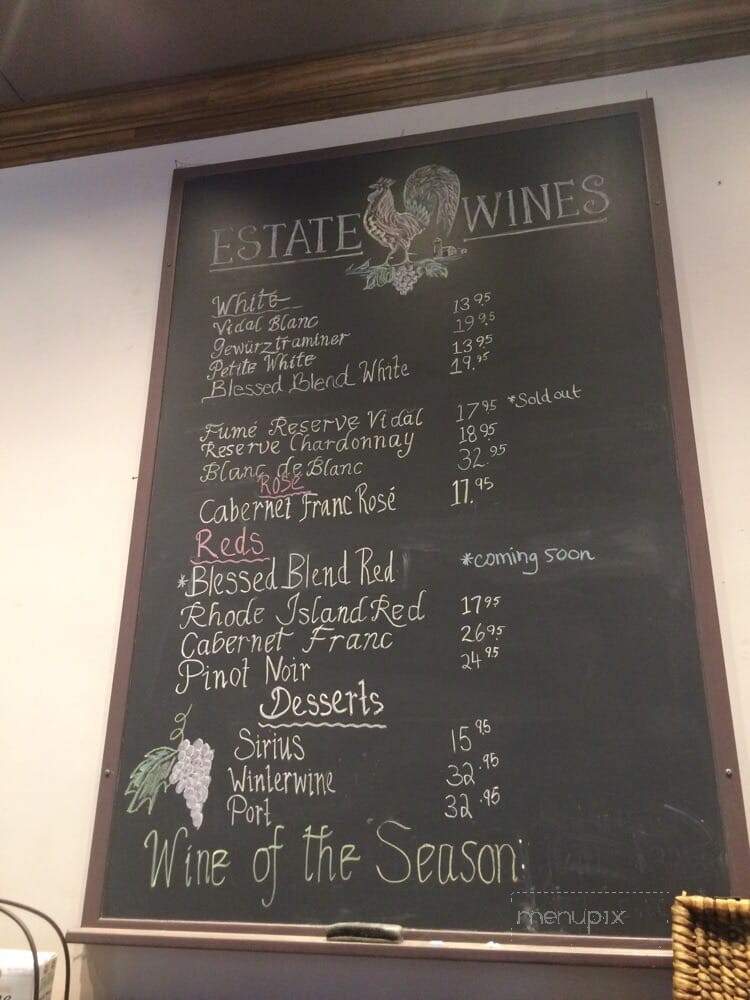 ESTATE WINES
White
Vidal Blanc 13.95
Gewürztraminer 19.95
Petite White 13.95
Blessed Blend White 19.95
Fumé Reserve Vidal 17.95 *Sold out
Reserve Chardonnay 18.95
Blanc de Blanc 32.95
Rosé
Cabernet Franc Rosé 17.95
Reds
*Blessed Blend Red *coming soon
Rhode Island Red 17.95
Cabernet Franc 26.95
Pinot Noir 24.95
Desserts
Sirius 15.95
Winterwine 32.95
Port 32.95
Wine of the Season:
menupix